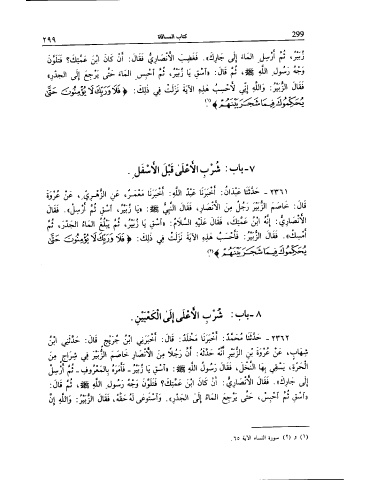 299
كتاب المساقاة
٢٩٩
زُبَيْرُ، ثُمَّ أَرْسِلِ المَاءَ إِلَى جَارِكَ». فَغَضِبَ الأَنْصَارِيُّ فَقَالَ: أَنْ كَانَ ابْنَ عَمَّتِكَ؟ فَتَلَوَّنَ
وَجْهُ رَسُولِ اللَّهِ ﷺ، ثُمَّ قَالَ: «اسْقِ يَا زُبَيْرُ، ثُمَّ احْبِسِ المَاءَ حَتَّى يَرْجِعَ إِلَى الجَدْرِ»
فَقَالَ الزُّبَيْرُ: وَاللَّهِ إِنِّي لَأَحْسِبُ هٰذِهِ الآيَةَ نَزَلَتْ فِي ذلِكَ: ﴿فَلَا وَرَبِّكَ لَا يُؤْمِنُونَ حَتَّىٰ
يُحَكِّمُوكَ فِيمَا شَجَرَ بَيْنَهُمْ﴾(١)
٧- باب: شُرْبِ الأَعْلَى قَبْلَ الأَسْفَلِ.
٢٣٦١ - حَدَّثَنَا عَبْدَانُ: أَخْبَرَنَا عَبْدُ اللَّهِ: أَخْبَرَنَا مَعْمَرٌ، عَنِ الزُّهْرِيِّ، عَنْ عُرْوَةَ
قَالَ: خَاصَمَ الزُّبَيْرَ رَجُلٌ مِنَ الأَنْصَارِ، فَقَالَ النَّبِيُّ ﷺ: «يَا زُبَيْرُ، اسْقِ ثُمَّ أَرْسِلْ». فَقَالَ
الأَنْصَارِيُّ: إِنَّهُ ابْنُ عَمَّتِكَ، فَقَالَ عَلَيْهِ السَّلَامُ: «اسْقِ يَا زُبَيْرُ، ثُمَّ يَبْلُغُ المَاءُ الجَدْرَ، ثُمَّ
أَمْسِكْ». فَقَالَ الزُّبَيْرُ: فَأَحْسِبُ هٰذِهِ الآيَةَ نَزَلَتْ فِي ذلِكَ: ﴿فَلَا وَرَبِّكَ لَا يُؤْمِنُونَ حَتَّىٰ
يُحَكِّمُوكَ فِيمَا شَجَرَ بَيْنَهُمْ﴾(٢)
٨- باب: شُرْبِ الأَعْلَى إِلَى الكَعْبَيْنِ.
٢٣٦٢ - حَدَّثَنَا مُحَمَّدٌ: أَخْبَرَنَا مَخْلَدٌ: قَالَ: أَخْبَرَنِي ابْنُ جُرَيْجٍ قَالَ: حَدَّثَنِي ابْنُ
شِهَابٍ، عَنْ عُرْوَةَ بْنِ الزُّبَيْرِ أَنَّهُ حَدَّثَهُ: أَنَّ رَجُلًا مِنَ الأَنْصَارِ خَاصَمَ الزُّبَيْرَ فِي شِرَاجٍ مِنَ
الحَرَّةِ، يَسْقِي بِهَا النَّخْلَ، فَقَالَ رَسُولُ اللَّهِ ﷺ: «اسْقِ يَا زُبَيْرُ - فَأَمَرَهُ بِالمَعْرُوفِ - ثُمَّ أَرْسِلْ
إِلَى جَارِكَ». فَقَالَ الأَنْصَارِيُّ: أَنْ كَانَ ابْنَ عَمَّتِكَ؟ فَتَلَوَّنَ وَجْهُ رَسُولِ اللَّهِ ﷺ، ثُمَّ قَالَ:
«اسْقِ ثُمَّ احْبِسْ، حَتَّى يَرْجِعَ المَاءُ إِلَى الجَدْرِ». وَاسْتَوْعَى لَهُ حَقَّهُ، فَقَالَ الزُّبَيْرُ: وَاللَّهِ إِنَّ
(١) و (٢) سورة النساء الآية ٦٥.